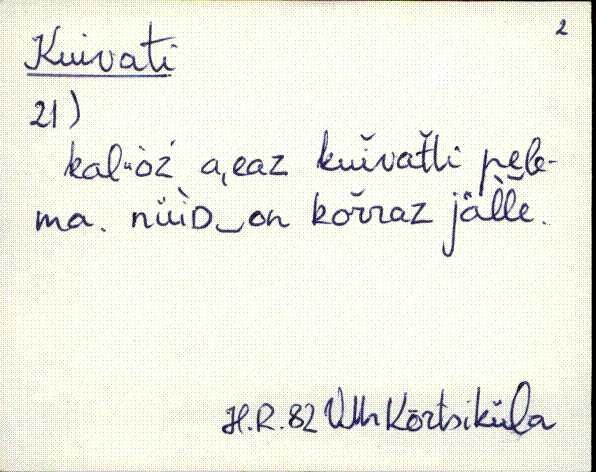 2
Kuivati
21)
kal·òź a,eaz kuĭvaťťli pęle-
ma. nüüD‿on kŏrraz jälle.
H.R. 82 VMr Kõrtsiküla